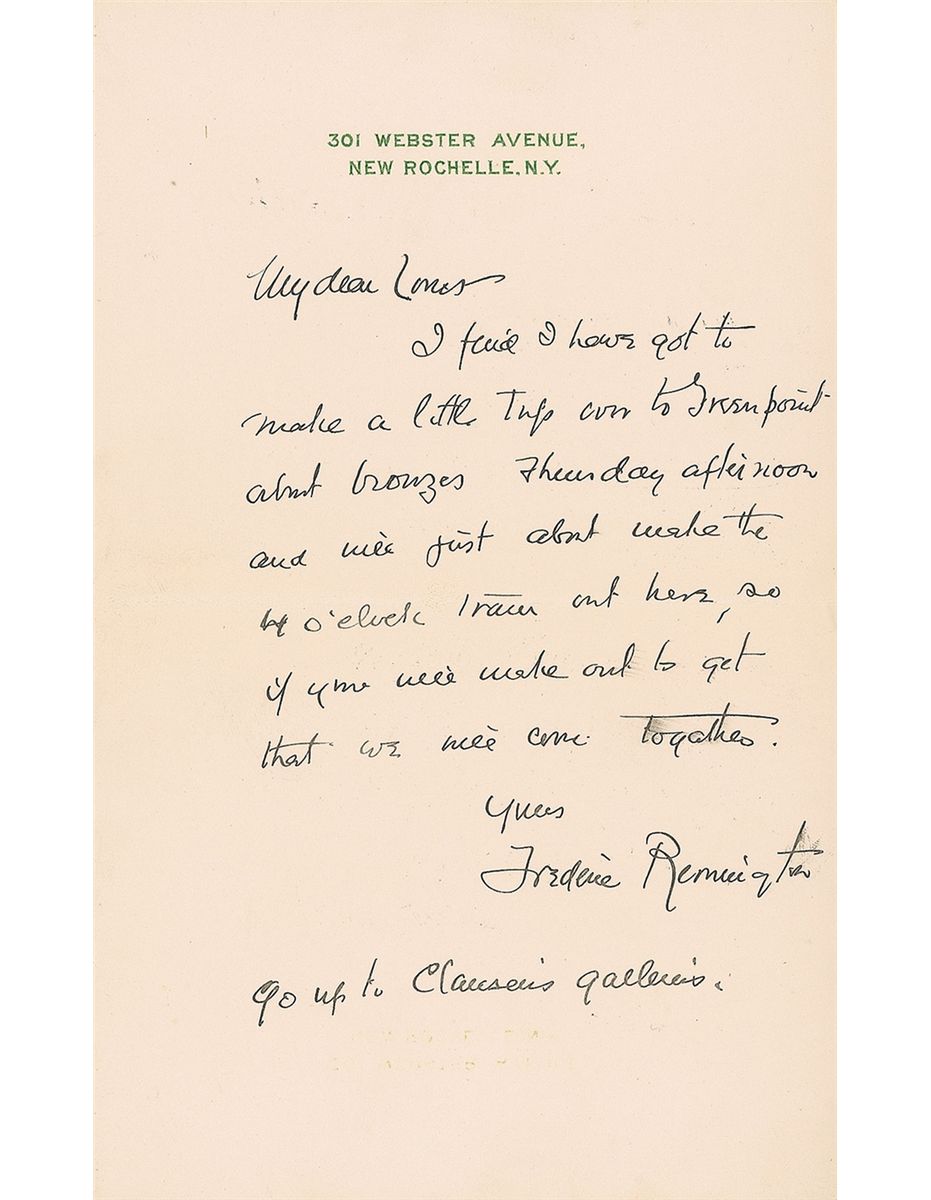 301 WEBSTER AVENUE,
NEW ROCHELLE, N.Y.
My dear
I find I have got to
make a little trip over to Greenpoint
about bronzes Thursday afternoon
and will just about make the
4 o'clock train out here, so
if you will make out to get
that we will come together.
Yours
Frederic Remington
Go up to Clausen's galleries.